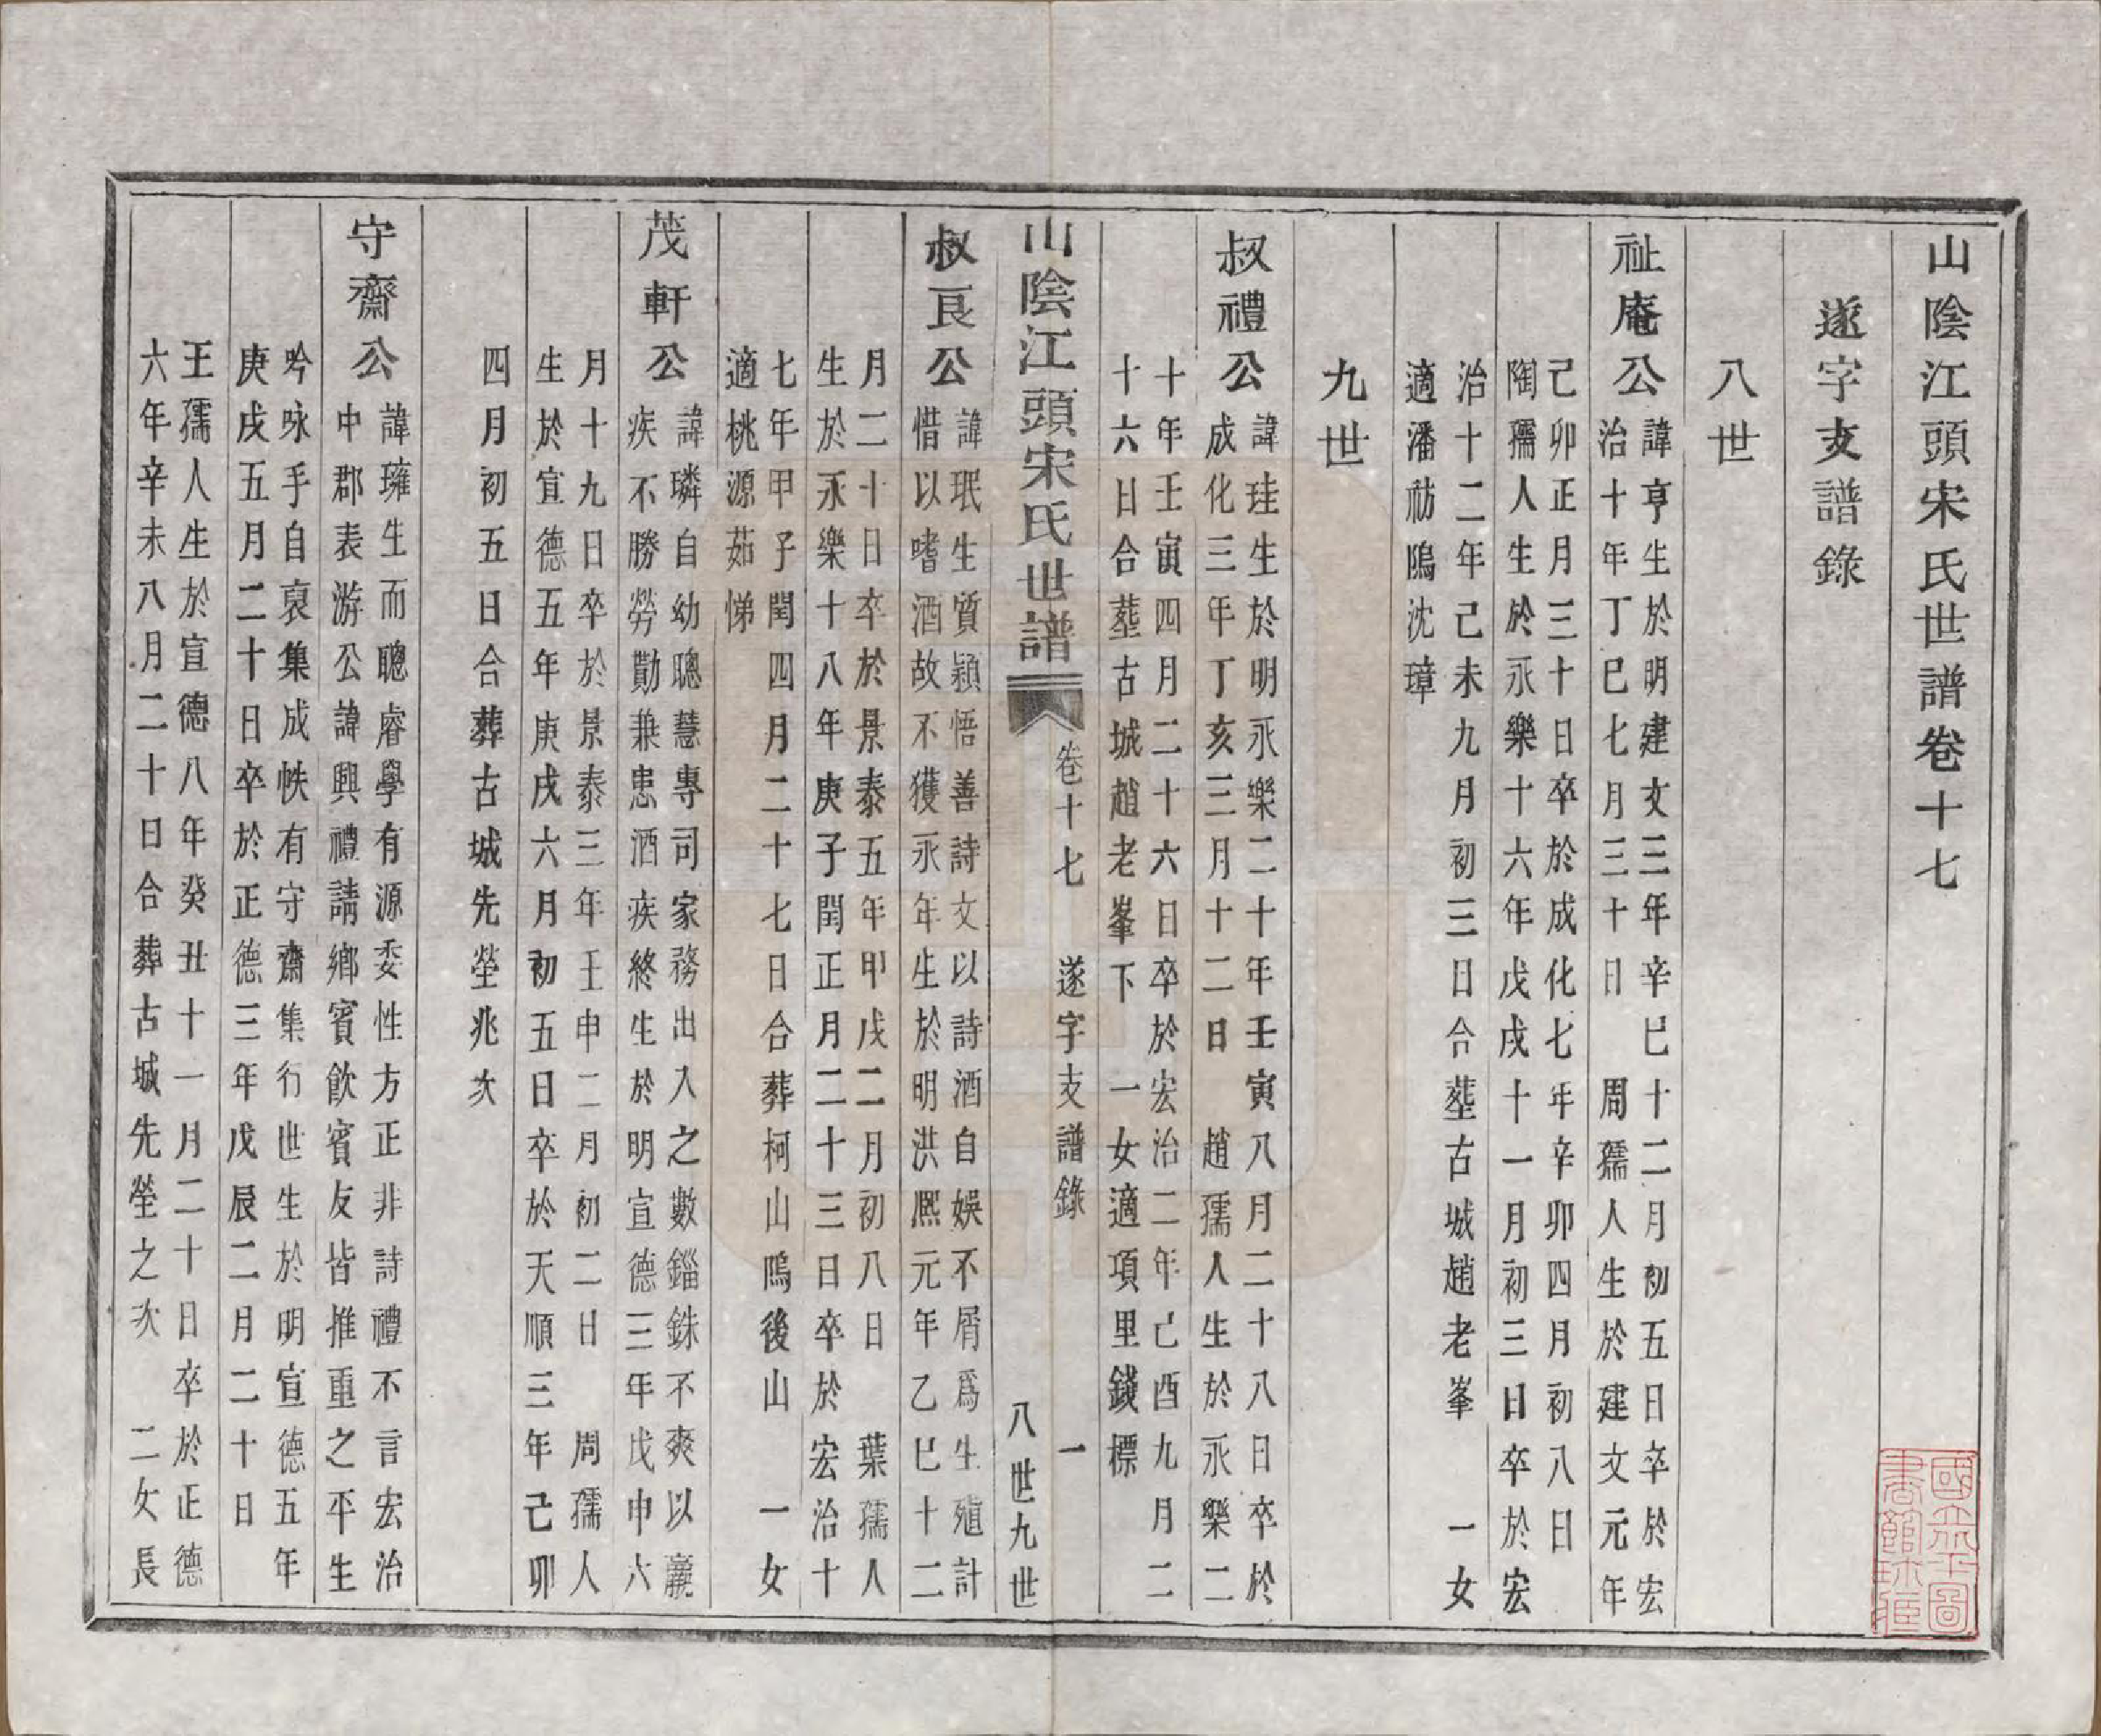 山陰江頭宋氏世譜卷十七
遂字支譜錄
八世
祉庵公
諱亨生於明建文三年辛巳十二月初五日卒於宏
治十年丁巳七月三十日　周孺人生於建文元年
己卯正月三十日卒於成化七年辛卯四月初八日
陶孺人生於永樂十六年戊戌十一月初三日卒於宏
治十二年己未九月初三日合塟古城趙老峯　一女
適潘舫隖沈璋
九世
叔禮公
諱珪生於明永樂二十年壬寅八月二十八日卒於
成化三年丁亥三月十二日　趙孺人生於永樂二
十年壬寅四月二十六日卒於宏治二年己酉九月二
十六日合塟古城趙老峯下　一女適項里錢標
山陰江頭宋氏世譜
卷十七　遂字支譜錄　一
八世九世
叔良公
諱珉生質穎悟善詩文以詩酒自娛不屑爲生殖計
惜以嗜酒故不獲永年生於明洪熈元年乙巳十二
月二十日卒於景泰五年甲戌二月初八日　葉孺人
生於永樂十八年庚子閏正月二十三日卒於宏治十
七年甲子閏四月二十七日合葬柯山隖後山　一女
適桃源茹悌
茂軒公
諱璘自幼聰慧專司家務出入之數錙銖不爽以羸
疾不勝勞勩兼患酒疾終生於明宣德三年戊申六
月十九日卒於景泰三年壬申二月初二日　周孺人
生於宣德五年庚戌六月初五日卒於天順三年己卯
四月初五日合葬古城先塋兆次
守齋公
諱璀生而聰睿學有源委性方正非詩禮不言宏治
中郡表游公諱興禮請鄉賓飮賓友皆推重之平生
吟咏手自裒集成帙有守齋集行世生於明宣德五年
庚戌五月二十日卒於正德三年戊辰二月二十日
王孺人生於宣德八年癸丑十一月二十日卒於正德
六年辛未八月二十日合葬古城先塋之次　二女長